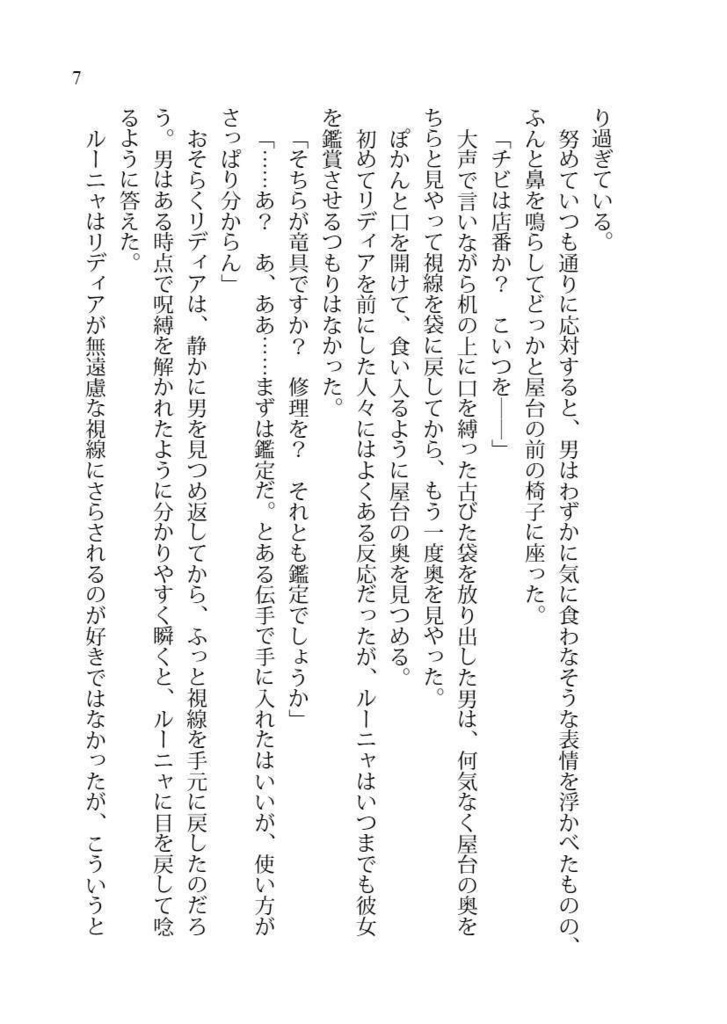 7
り過ぎている。
　努めていつも通りに応対すると、男はわずかに気に食わなそうな表情を浮かべたものの、
ふんと鼻を鳴らしてどっかと屋台の前の椅子に座った。
「チビは店番か？　こいつを――」
　大声で言いながら机の上に口を縛った古びた袋を放り出した男は、何気なく屋台の奥を
ちらと見やって視線を袋に戻してから、もう一度奥を見やった。
　ぽかんと口を開けて、食い入るように屋台の奥を見つめる。
　初めてリディアを前にした人々にはよくある反応だったが、ルーニャはいつまでも彼女
を鑑賞させるつもりはなかった。
「そちらが竜具ですか？　修理を？　それとも鑑定でしょうか」
「……あ？　あ、ああ……まずは鑑定だ。とある伝手で手に入れたはいいが、使い方が
さっぱり分からん」
　おそらくリディアは、静かに男を見つめ返してから、ふっと視線を手元に戻したのだろ
う。男はある時点で呪縛を解かれたように分かりやすく瞬くと、ルーニャに目を戻して唸
るように答えた。
　ルーニャはリディアが無遠慮な視線にさらされるのが好きではなかったが、こういうと